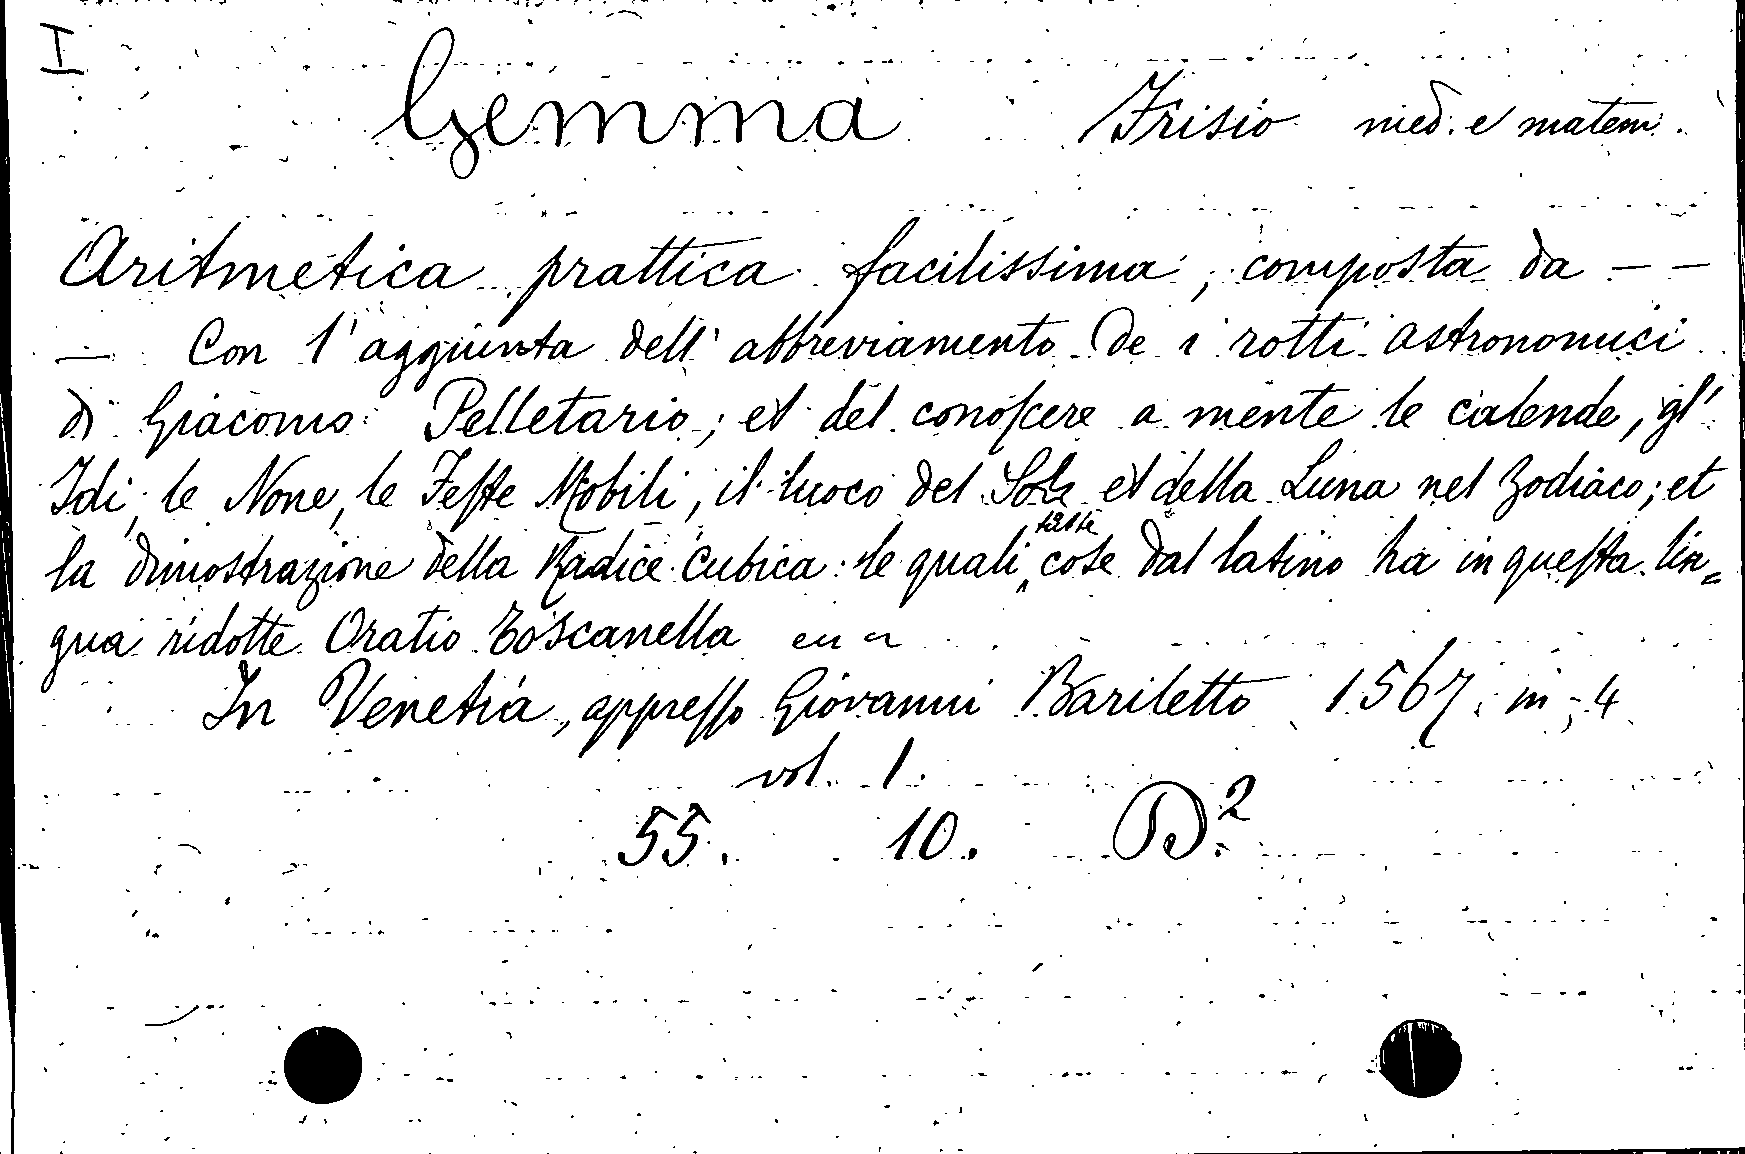 I
Gemma Frisio med. e matem.
Aritmetica prattica facilissima, composta da — —
— Con l'aggiunta dell' abbreviamento de i rotti astronomici
di Giacomo Pelletario; et del conoſcere a mente le calende, gl'
Idi, le None, le Feſte Mobili, il luoco del Sole et della Luna nel Zodiaco; et
la dimostrazione della Radice cubica: le quali tutte cose dal latino ha in queſta lin=
gua ridotte Oratio Toscanella
In Venetia, appreſſo Giovanni Bariletto 1567. in-4
vol. 1.
55. 10. D.²